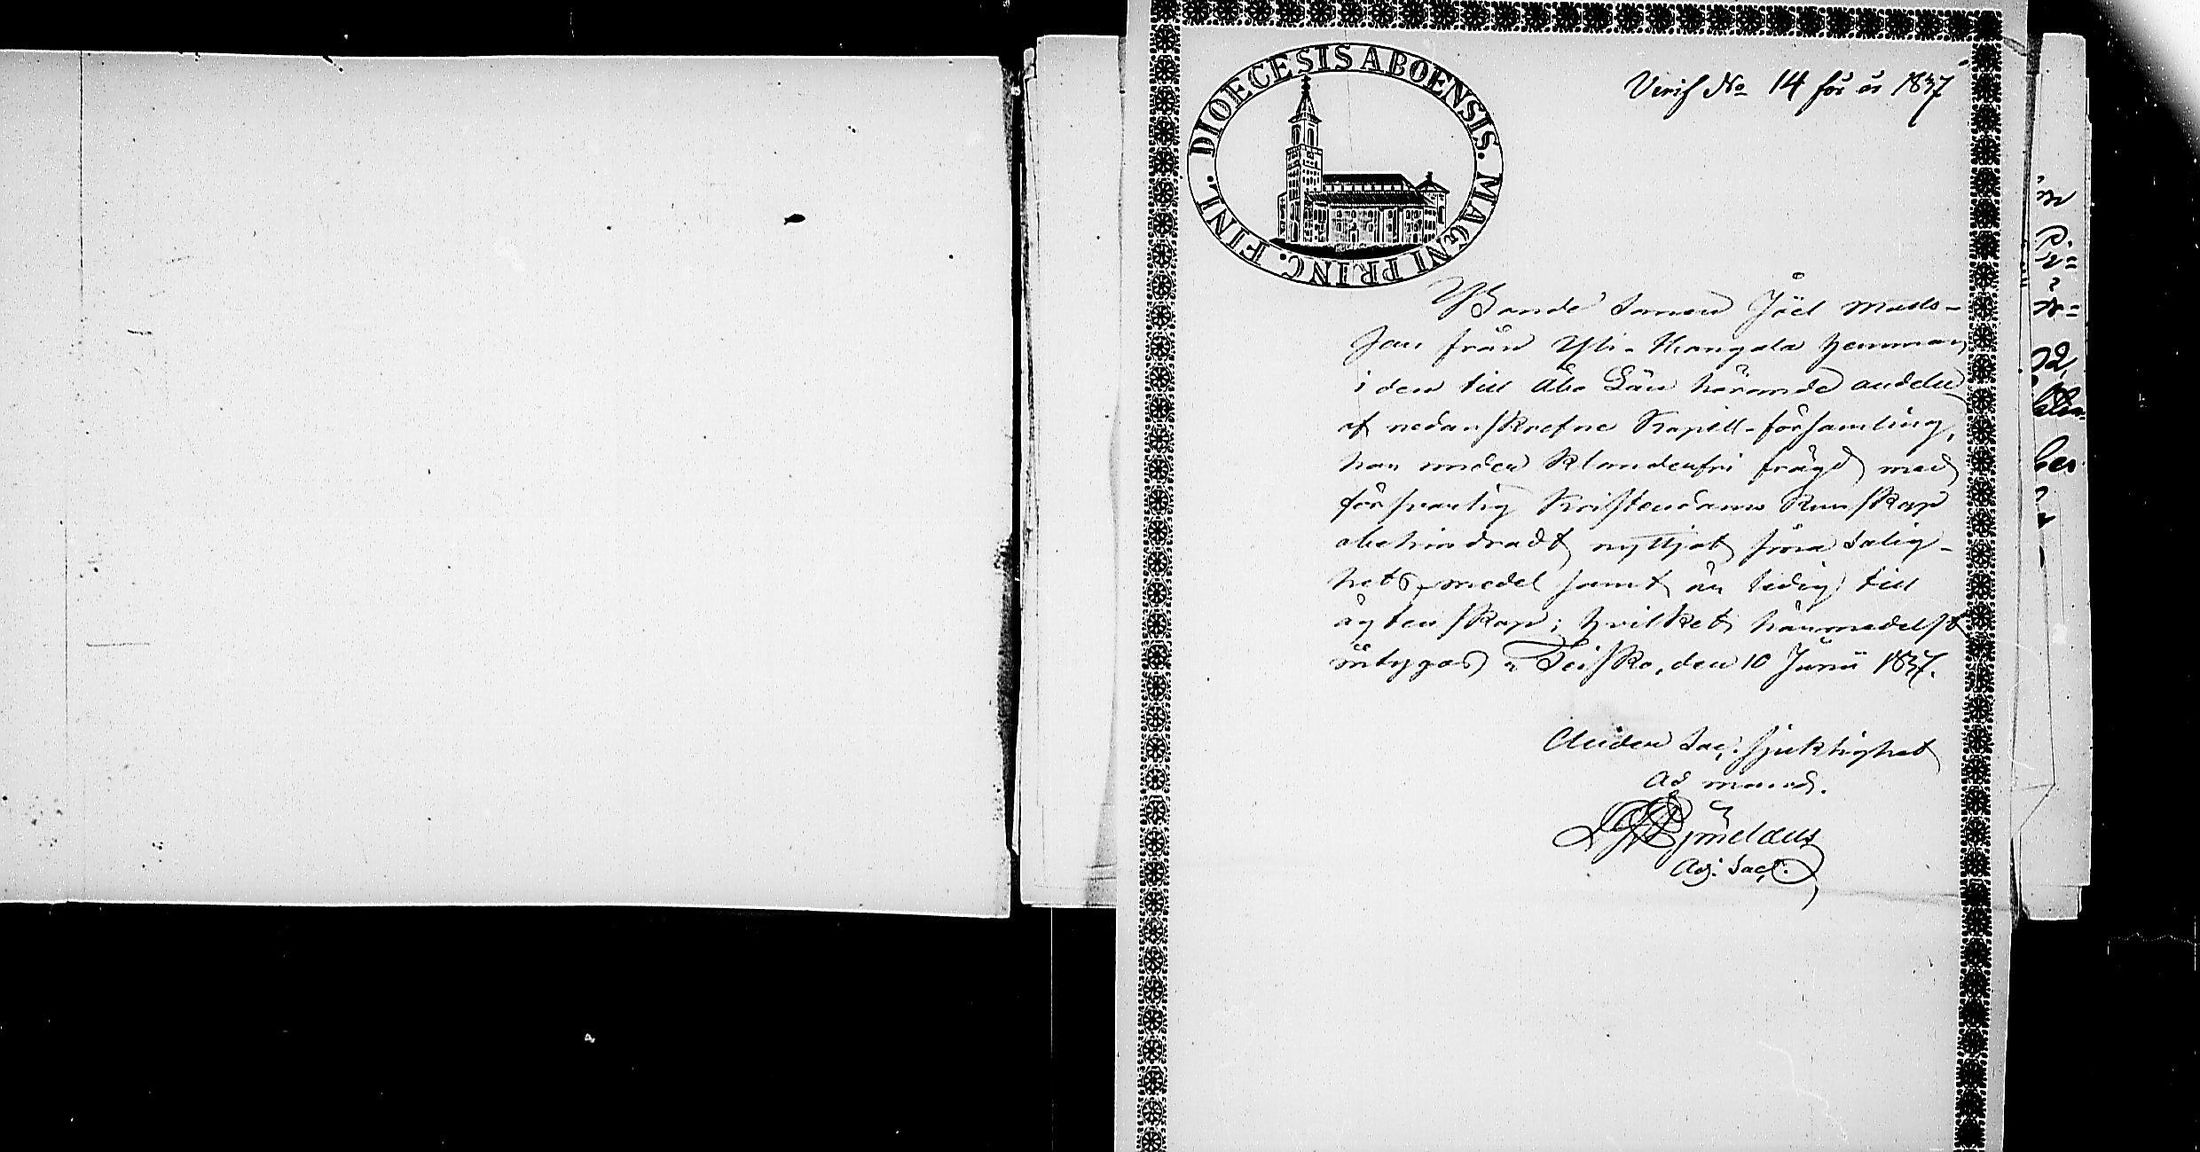 DIOECESIS ABOENSIS. MAGNI PRINC. FINL.
Verif No 14 för år 1837
Bonde Sonen Joël Matts-
son från Yli-Kangala hemman,
i den till Åbo Län hörande andelen
af nedanskrefne Kapell-församling,
har under klanderfri frägd med
försvarlig Kristendoms Kunskap
obehindradt nyttjat sina Salig-
hets-medel samt är ledig till
ägtenskap; hvilket härmedelst
intygas. Teisko, den 10 Junii 1837.
Under Sac: sjuklighet
ad mand.
Adj. Sac.